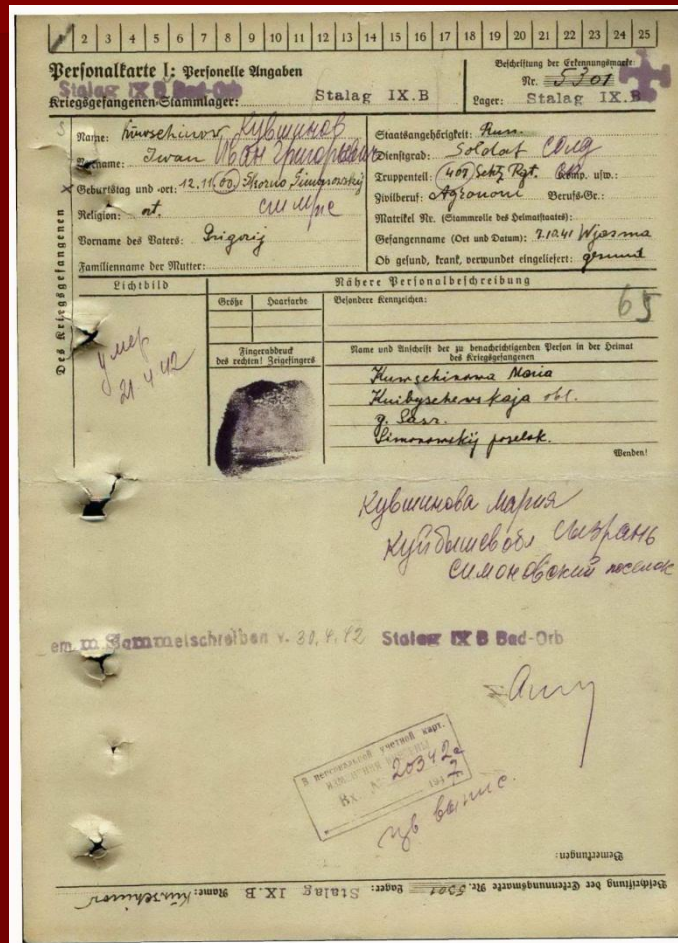 1 2 3 4 5 6 7 8 9 10 11 12 13 14 15 16 17 18 19 20 21 22 23 24 25
Personalkarte I: Personelle Angaben
Beschriftung der Erkennungsmarke:
Stalag IX B Bad-Orb
Nr. 5301
Kriegsgefangenen-Stammlager: Stalag IX.B
Lager: Stalag IX.B
Des Kriegsgefangenen
Name: Кувшинов
Vorname: Iwan Иван Григорьевич
Geburtstag und -ort: 12.11.00.
Religion: ort.
Vorname des Vaters: Grigorij
Familienname der Mutter:
Staatsangehörigkeit: Russ.
Dienstgrad: Soldat солд
Truppenteil: Rgt. Komp. usw.:
Zivilberuf: Agronom Berufs-Gr.:
Matrikel Nr. (Stammrolle des Heimatstaates):
Gefangennahme (Ort und Datum): 7.10.41 Wjasma
Ob gesund, krank, verwundet eingeliefert: gesund
Lichtbild
Nähere Personalbeschreibung
Größe Haarfarbe
Besondere Kennzeichen:
65
умер
21 4 42
Fingerabdruck
des rechten! Zeigefingers
Name und Anschrift der zu benachrichtigenden Person in der Heimat
des Kriegsgefangenen
Kuwschinowa Maria
Kuibyschewskaja obl.
Simonowskij poselok.
Wenden!
Кувшинова Мария
Куйбышев обл Сызрань
Симоновский поселок
em. m. Sammelschreiben v. 30.4.42 Stalag IX B Bad-Orb
В персональной учетной карт.
изменения внесены
Вх. № 20342
194
Bemerkungen:
Beschriftung der Erkennungsmarke Nr. 5301 Lager: Stalag IX.B Name: